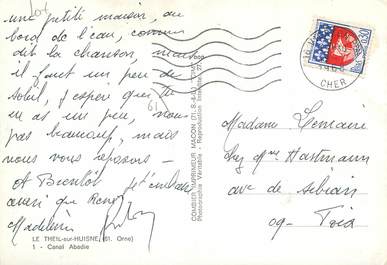 une petite maison, au
bord de l'eau, comme
dit la chanson, mais
il faut un peu de
soleil, j'espère que tu
en as un peu, nous
pas beaucoup, mais
nous nous reposons -
A Bientôt je t'embrasse
ainsi que René
Madeleine
LE THEIL-sur-HUISNE (61. Orne)
1 - Canal Abadie
61
COMBIER IMPRIMEUR MACON (71. S.-&-L.)
Photographie Véritable - Reproduction Interdite
CHER
Madame Lemaire
chez Mme Hastmann
ave de
09 - Foix